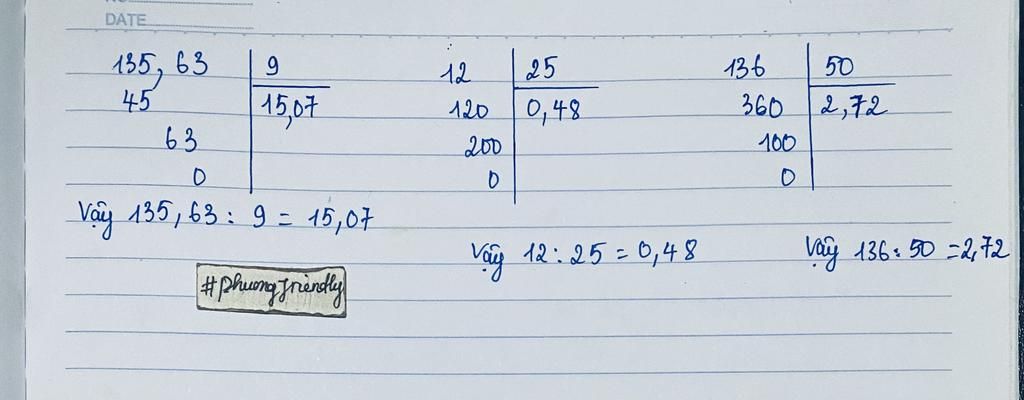 DATE
135,63 9
45 15,07
63
0
Vậy 135,63 : 9 = 15,07
12 25
120 0,48
200
0
Vậy 12 : 25 = 0,48
136 50
360 2,72
100
0
Vậy 136 : 50 = 2,72
#phuongfriendly